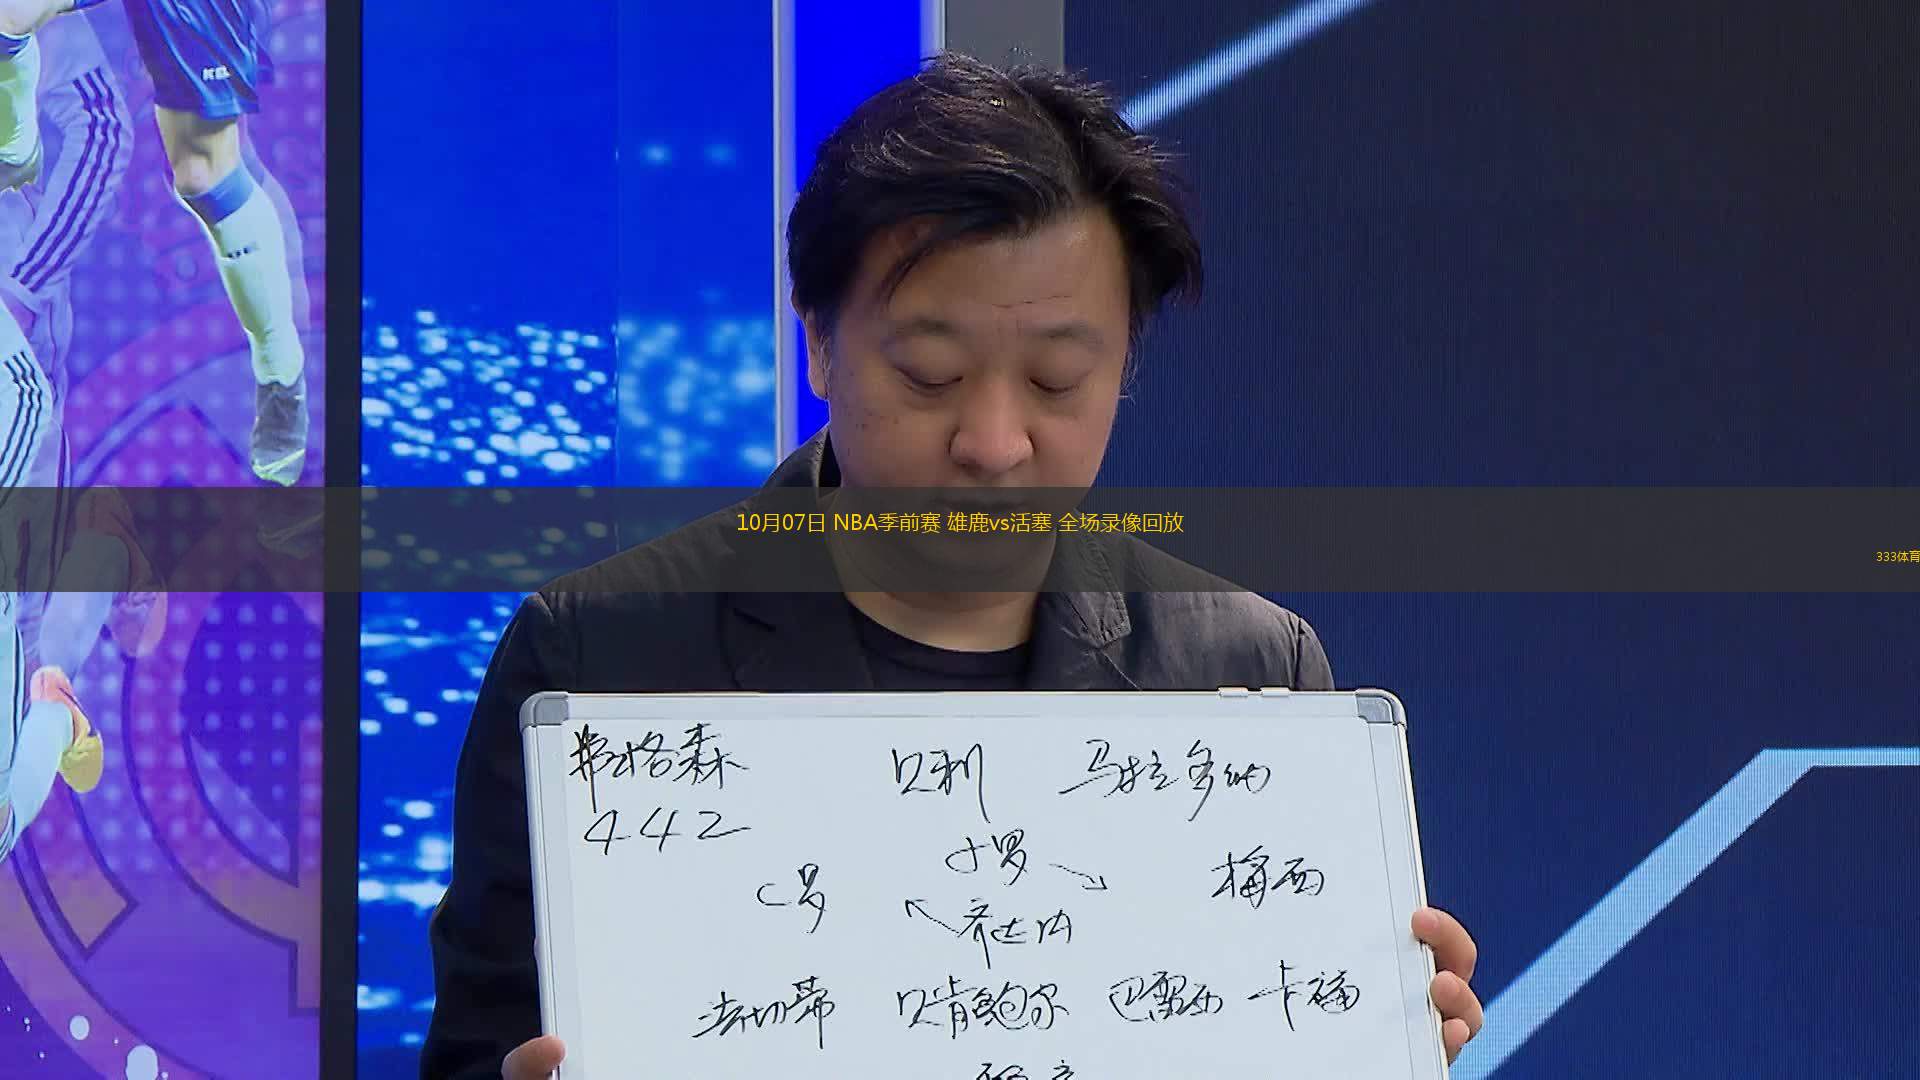 10月07日 NBA季前赛 雄鹿vs活塞 全场录像回放
333体育
弗格森 贝利 马拉多纳
442
小罗
C罗 梅西
齐达内
法切蒂 贝肯鲍尔 巴雷西 卡福